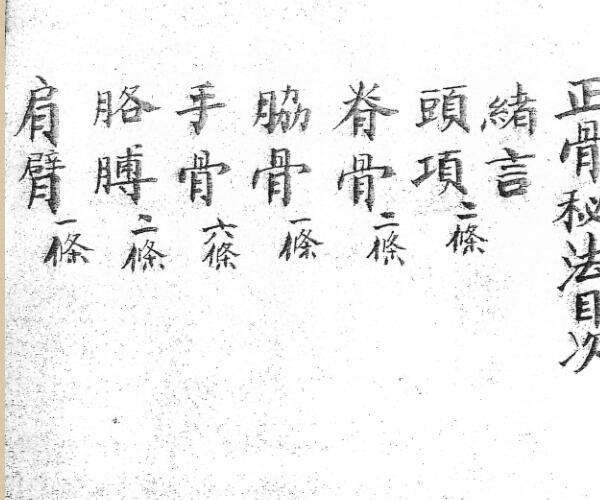 正骨秘法目次
緒言
頭項二條
脊骨二條
脇骨一條
手骨六條
胳膊二條
肩臂一條